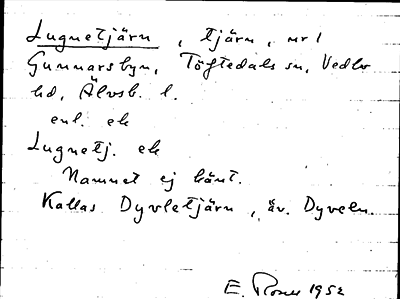 Lugnetjärn, tjärn, nr 1
Gunnarsbyn, Töftedals sn, Vedbo
hd, Älvsb. l.
enl. ek
Lugnetj. ek
Namnet ej känt.
Kallas Dyvletjärn, äv. Dyveln.
E. 1952